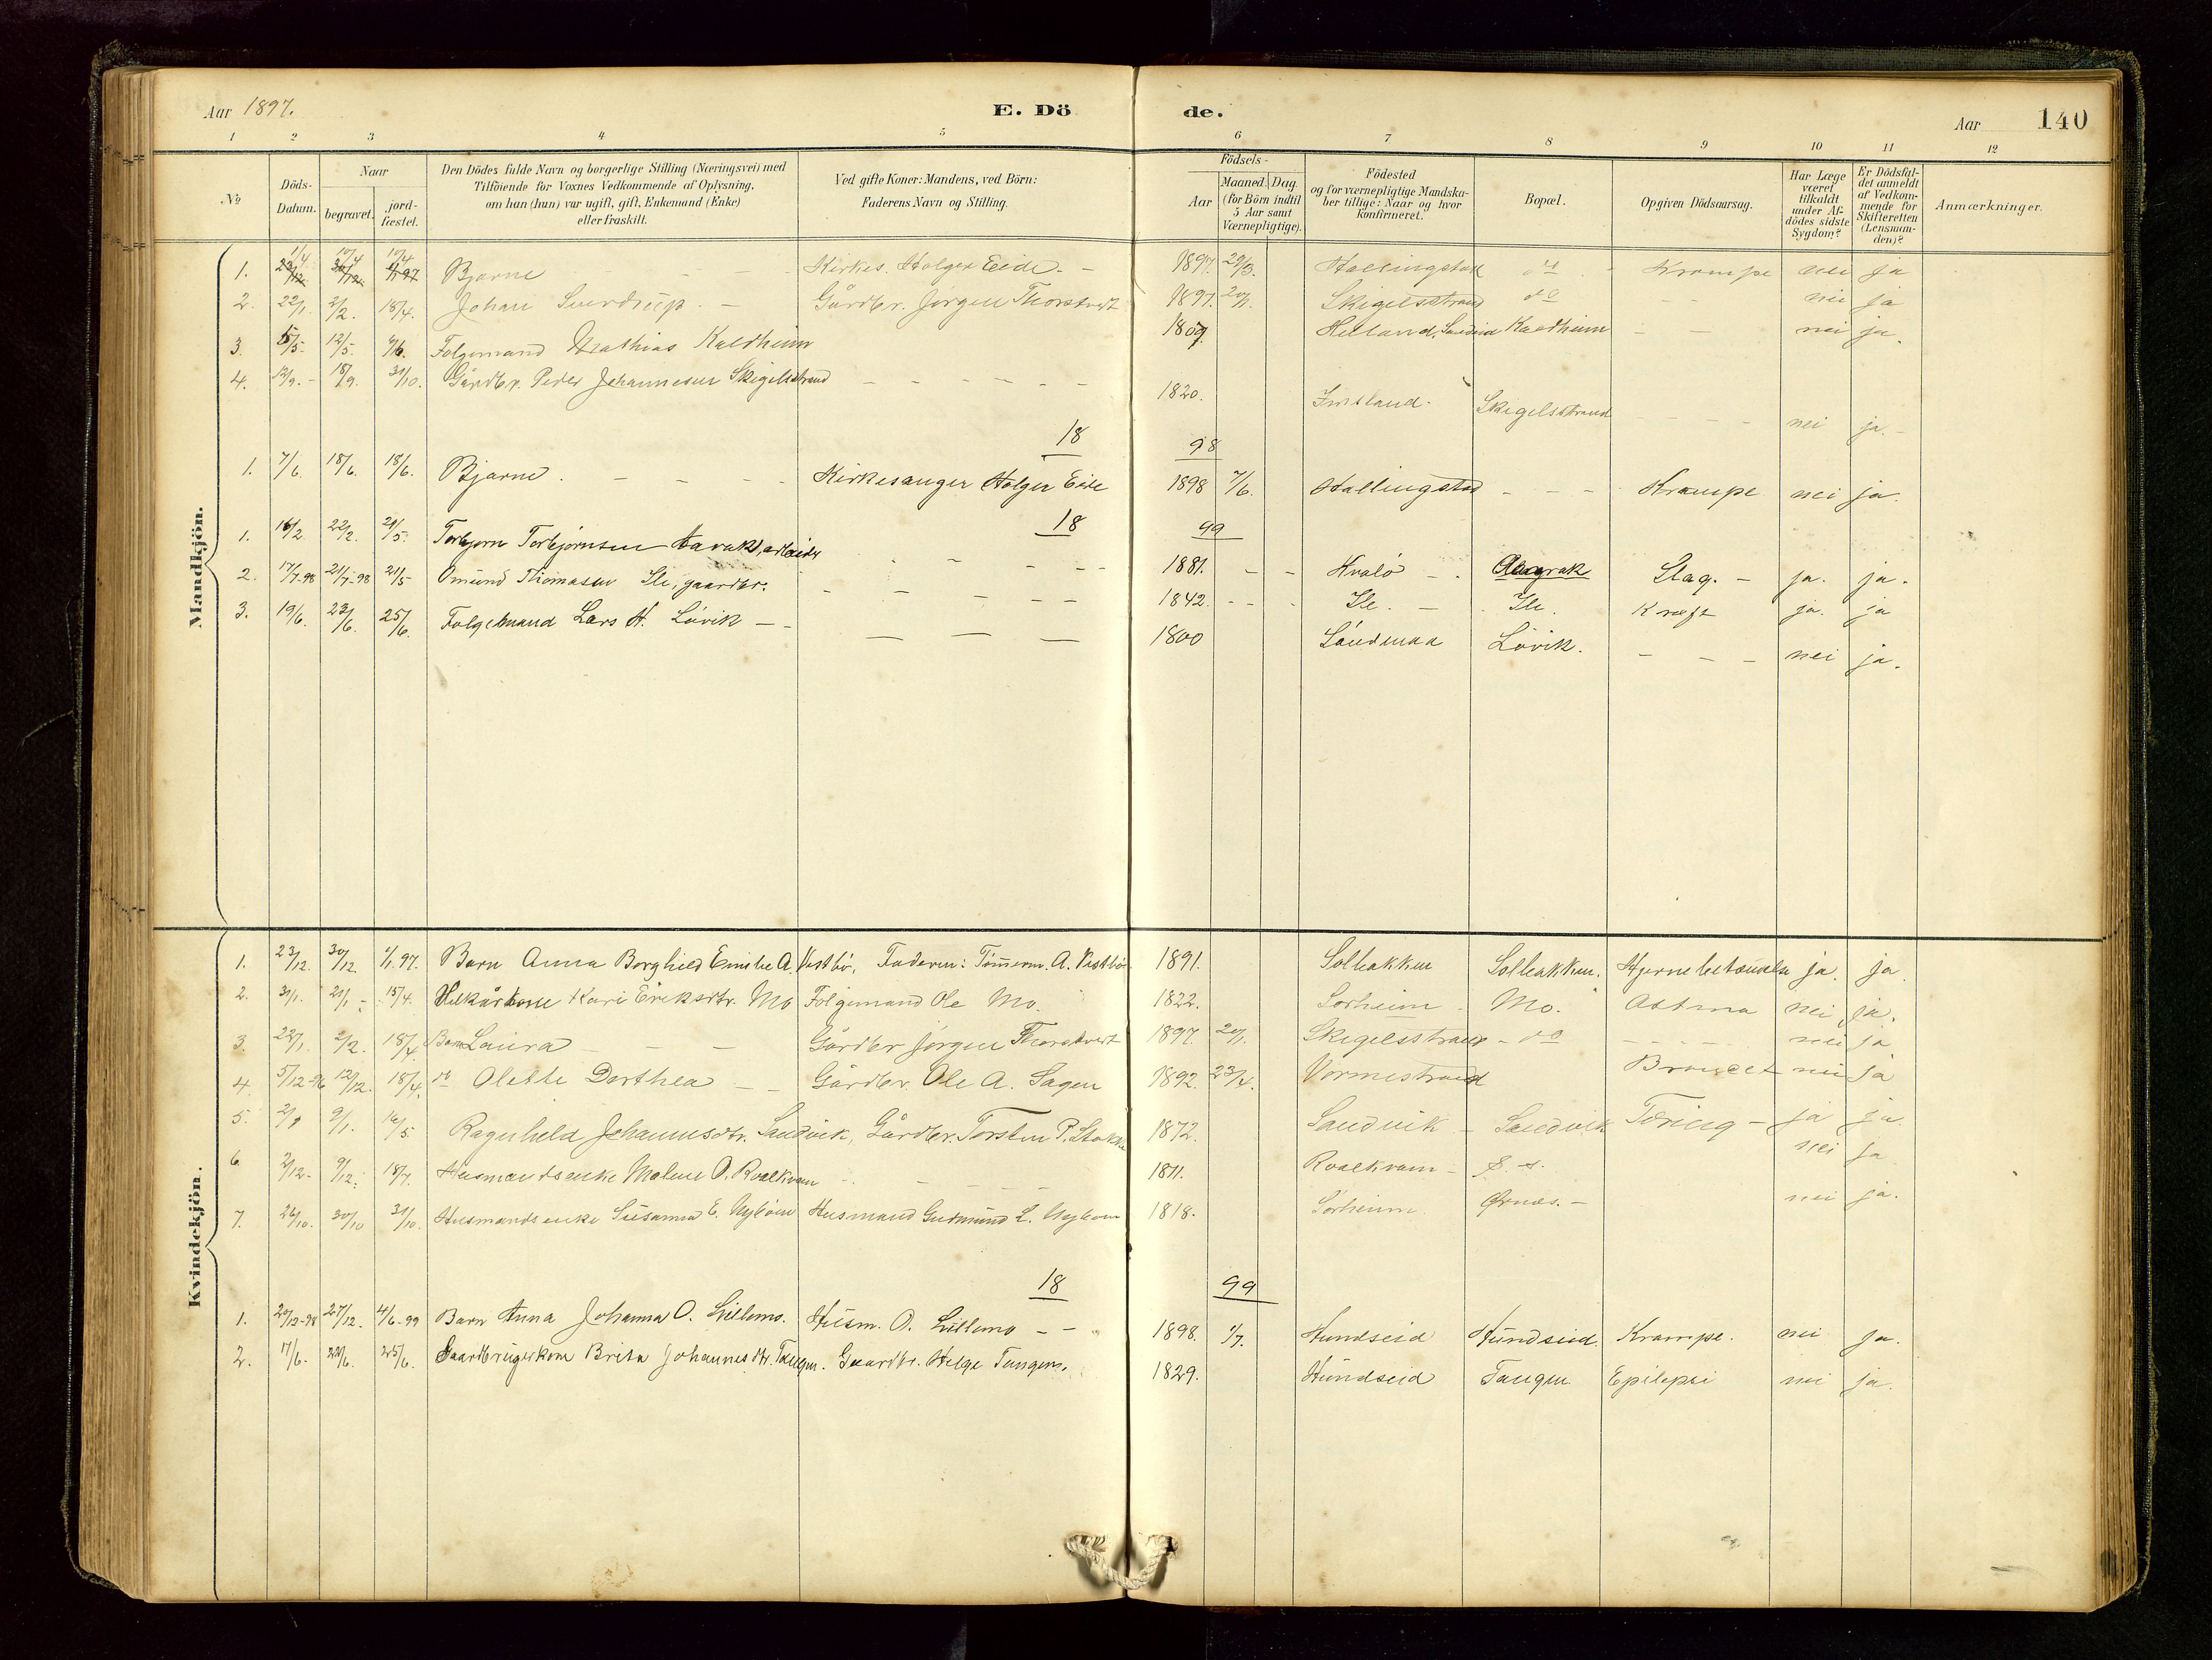 Aar 1897. E. Dö de. Aar 140
1 2 3 4 5 6 7 8 9 10 11 12
№
Döds-Datum.
Naar
begravet.
jord-fæstet.
Den Dödes fulde Navn og borgerlige Stilling (Næringsvei) med
Tilföiende for Voxnes Vedkommende af Oplysning,
om han (hun) var ugift, gift, Enkemand (Enke)
eller fraskilt.
Ved gifte Koner: Mandens, ved Börn:
Faderens Navn og Stilling.
Födsels-
Aar
Maaned. Dag.
(for Börn indtil
5 Aar samt
Værnepligtige).
Födested
og for værnepligtige Mandska-
ber tillige: Naar og hvor
konfirmeret.
Bopæl.
Opgiven Dödsaarsag.
Har Læge
været
tilkaldt
under Af-
dödes sidste
Sygdom?
Er Dödsfal-
det anmeldt
af Vedkom-
mende for
Skifteretten
(Lensman-
den)?
Anmærkninger.
Mandkjön.
1. 1/4 10/4 19/4 Bjarne - - Kirkes. Holger Eide. - 1897. 29/3. Hallingstad do Krampe nei ja
2. 22/1. 2/2. 18/4. Johan Sverdrup. - Gårdbr. Jørgen Thorstveit 1897. 20/1. Skigelsstrand do - - nei ja
3. 5/5. 12/5. 9/6. Folgemand Mathias Kaldheim 1809. Helland, Sandeid Kaldheim - - nei ja.
4. 12/9. - 18/9. 31/10. Gårdbr. Peder Johannesen Skigelsstrand - - - - - 1820. Imsland. Skigelsstrand - - - nei ja. -
18 98
1. 7/6. 18/6. 18/6. Bjarne. - - - - Kirkesanger Holger Eide 1898 7/6. Hallingstad - - - Krampe nei ja.
18 99
1. 16/2 22/2. 21/5. Torbjørn Torbjørnsen Aarak, arbeider - - - 1881. - - Hvalö - . Aagrak Slag. - ja. ja.
2. 17/7-98 21/7-98 21/5 Omund Thomasen Ile, gaardbr. - - - - 1842. - - Ile. - Ile. Kræft ja. ja
3. 19/6. 23/6. 25/6. Folgemand Lars H. Lövik - - - - - 1800 Söndenaa Lövik. - - - nei ja.
Kvindekjön.
1. 23/12. 30/12. 1/1.97. Barn Anna Borghild Emilie A. Vestbö, Faderen: Tömmerm. A. Vestbö 1891. Solbakken Solbakken. Hjernebetændelse ja. ja.
2. 3/1. 21/1. - 18/4. Vilkårkone Kari Eriksdtr. Mo Folgemand Ole Mo. 1822. Sørheim. Mo. Astma nei ja.
3. 22/1. 2/2. 18/4. Barn Laura - - - Gårdbr Jørgen Thorstveit 1897. 20/1. Skigelsstrand - do - - - - nei ja
4. 5/12-96 12/12. 18/4. do Olette Dorthea - - Gårdbr. Ole A. Sagen 1892. 23/4. Vormestrand Bronceet nei ja
5. 2/1 9/1. 16/5. Ragnhild Johannesdtr. Sandvik, Gårdbr. Torsten P. Stakke 1872. Sandvik - Sandvik Tæring - ja ja.
6. 2/12. 9/12. 18/7. Husmandsenke Malene O. Roalkvam - - - - 1811. Roalkvam - S. s. nei ja
7. 26/10. 30/10 31/10. Husmandsenke Susanna E. Nyböen Husmand Gudmund L. Nyböen 1818. Sørheim. Ørnæs. - nei ja.
18 99
1. 20/12-98 27/12. 4/6-99 Barn Anna Johanna O. Lillemo. Husm. O. Lillemo - - 1898. 1/7. Hundseid Hundseid. Krampe. nei ja.
2. 17/6. 22/6. 25/6. Gaardbrugerkone Brita Johannesdtr. Tangen. Gaardbr. Helge Tangen. 1829. Hundseid Tangen Epilepsi nei ja.